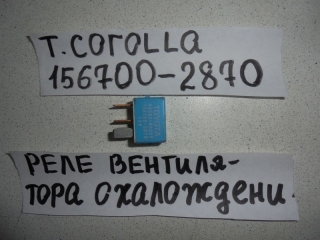 T. COROLLA
156700-2870
РЕЛЕ ВЕНТИЛЯ-
ТОРА ОХАЛОЖДЕНИ.